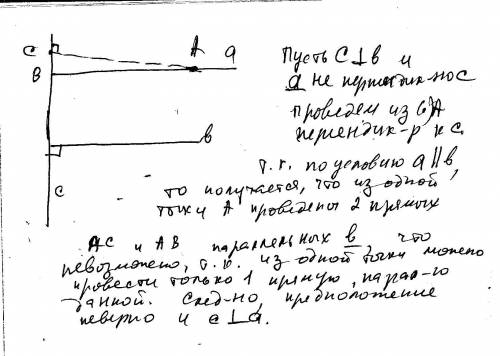 C
A
a
B
в
c
Пусть C⊥в и
a не перпендик-но C
проведем из (·)A
перпендик-р к C.
т.к. по условию a∥в,
то получается, что из одной
точки A проведены 2 прямых
AC и AB, параллельных в, что
невозможно, т.к. из одной точки можно
провести только 1 прямую, парал-ю
данной. След-но, предположение
неверно и c⊥a.